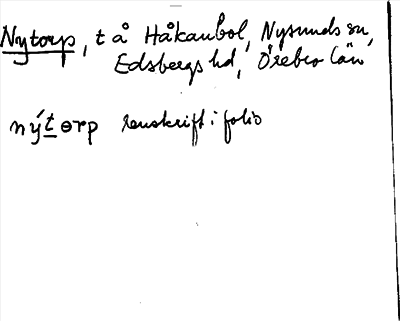 Nytorp, t å Håkanbol, Nysunds sn,
Edsbergs hd, Örebro län
ny´torp renskrift i folio